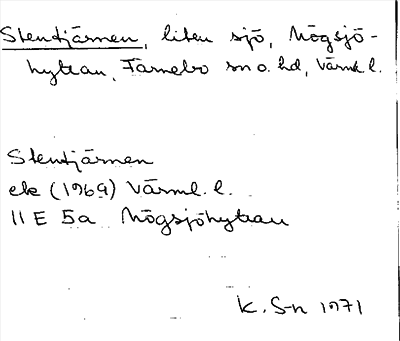 Stentjärnen, liten sjö, Högsjö-
hyttan, Färnebo sn o. hd, Värml. l.
Stentjärnen
ek (1969) Värml. l.
11 E 5a Högsjöhyttan
K. S-n 1971